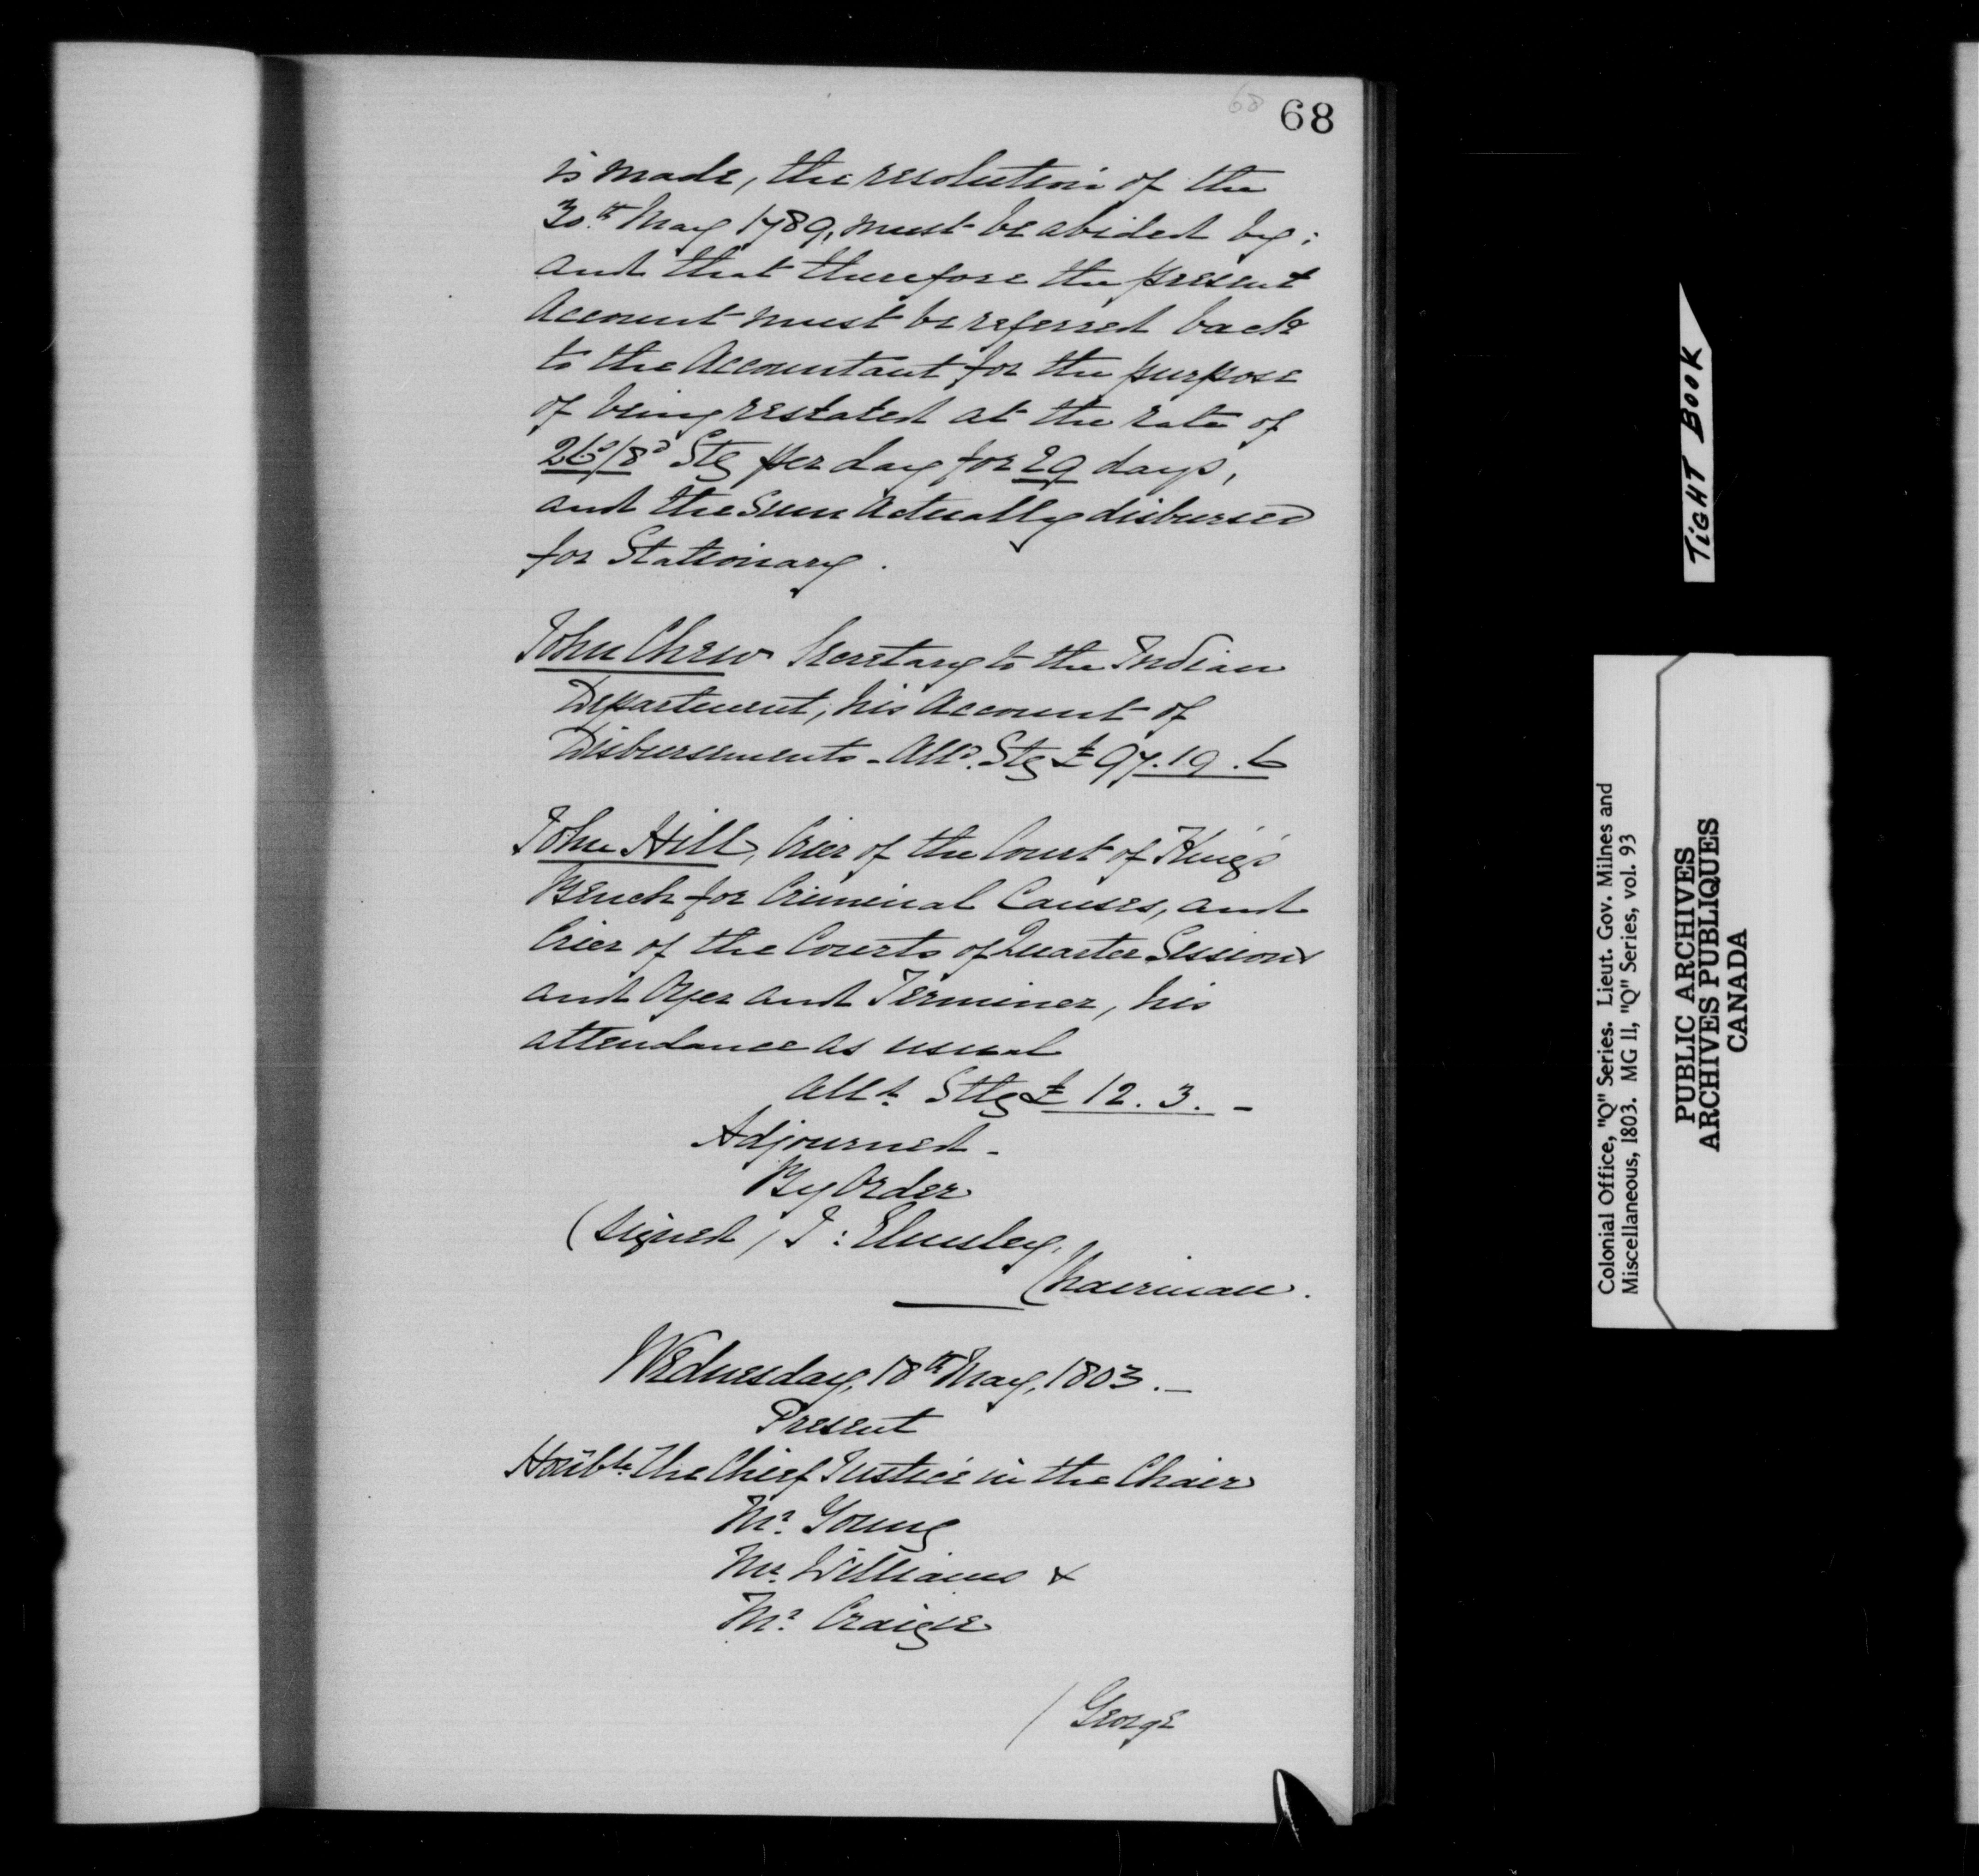 68 68
is made, the resolution of the
30.th May 1789, must be abided by;
and that therefore the present
Account must be referred back
to the Accountant for the purpose
of being restated at the rate of
26s/8d Stg per day for 29 days,
and the sum actually disbursed
for Stationary.
John Chew Secretary to the Indian
Department, his Account of
Disbursements - Alld. Stg £97.19.6
John Hill, Crier of the Court of King's
Bench for Criminal Causes, and
Crier of the Courts of Quarter Sessions
and Oyer and Terminer, his
attendance as usual
All'd. Sttg £12.3.-
Adjourned -
By Order
(signed) J: Elmsley,
Chairman.
Wednesday, 18th May, 1803.-
Present
Honble. The Chief Justice in the Chair
Mr. Young
Mr. Williams &
Mr. Craigie
/ George
TiGHT BOOK
Colonial Office, "Q" Series. Lieut. Gov. Milnes and
Miscellaneous, 1803. MG 11, "Q" Series, vol. 93
PUBLIC ARCHIVES
ARCHIVES PUBLIQUES
CANADA